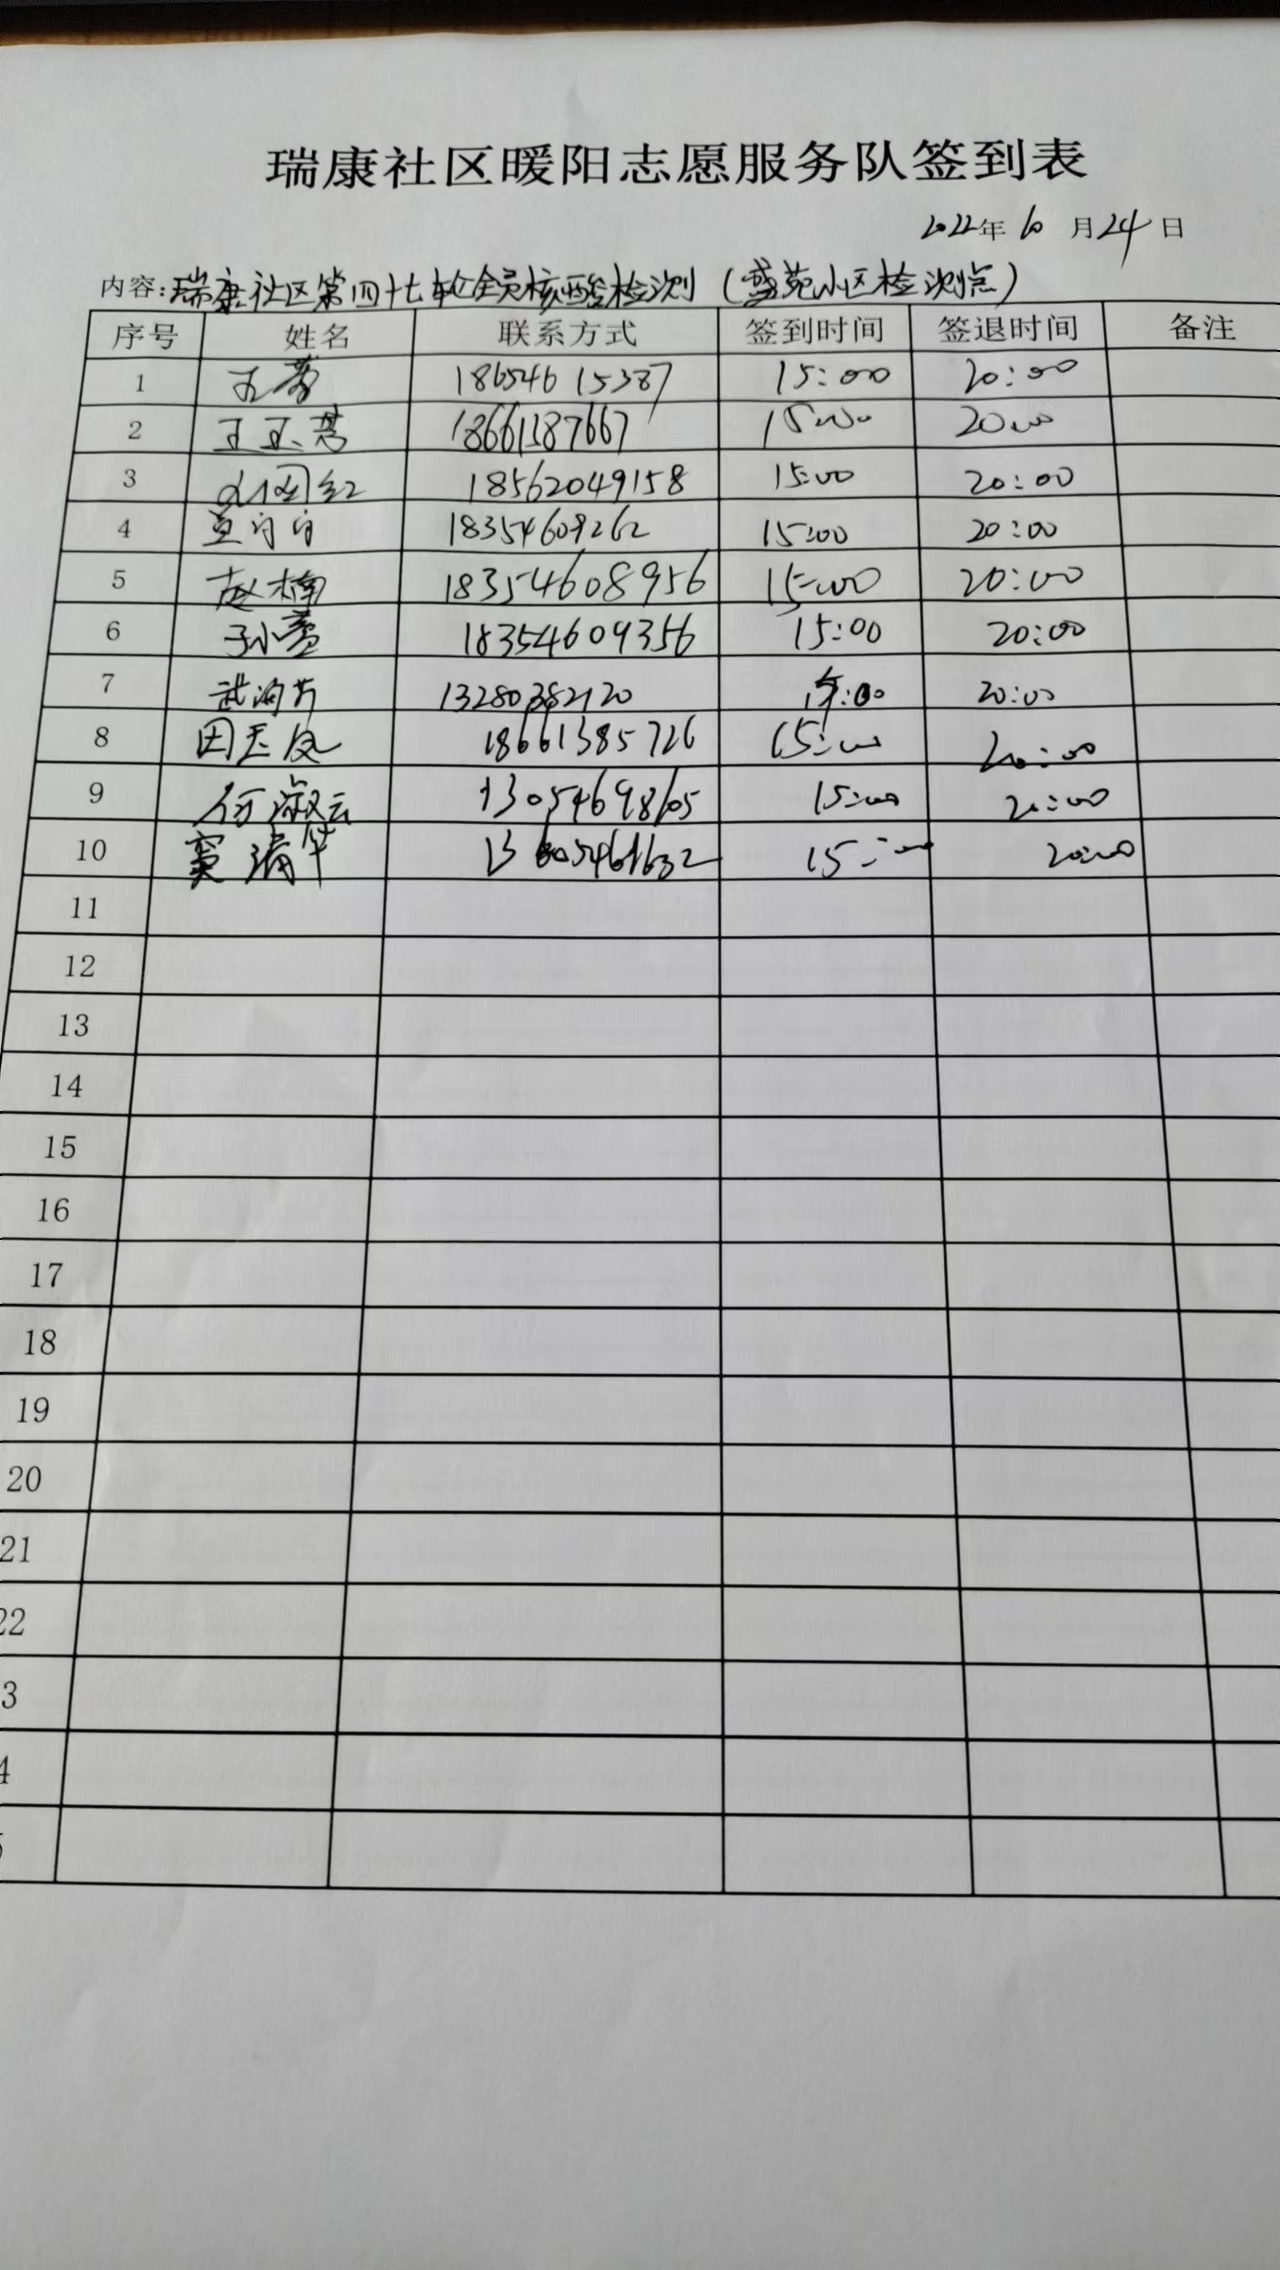 瑞康社区暖阳志愿服务队签到表
2022年10月24日
内容:瑞康社区第四十七轮全员核酸检测(盛苑小区检测点)
序号 姓名 联系方式 签到时间 签退时间 备注
1 18654615387 15:00 20:00
2 王玉芳 18661387667 15:00 20:00
3 18562049158 15:00 20:00
4 18354609262 15:00 20:00
5 赵楠 18354608956 15:00 20:00
6 18354609356 15:00 20:00
7 13280382120 15:00 20:00
8 田玉凤 18661385726 15:00 20:00
9 何淑云 13054698605 15:00 20:00
10 窦清华 15:00 20:00
11
12
13
14
15
16
17
18
19
20
21
22
3
4
5